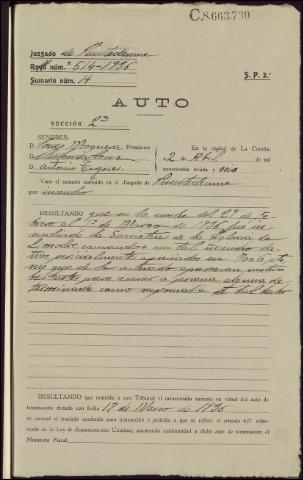 C.8,663,730
Juzgado de Puentedeume
Rollo núm. 614-1936
Sumario núm. 14
S. P. 2.ª
AUTO
SECCIÓN 2ª
SEÑORES:
D. Presidente
D.
D. Antonio
En la ciudad de La Coruña,
a 2 de Abril de mil
novecientos treinta y seis
Visto el sumario instruido en el Juzgado de Puentedeume
por incendio
RESULTANDO que en la noche del 29 de Fe-
brero al 1º de Marzo de 1936 fue in-
cendiada la Sacristía de la Iglesia de
causando en tal incendio da-
ños, pericialmente apreciados en
sin que de lo actuado aparezcan motivos
bastantes para acusar a persona alguna de-
terminada como responsable de tal hecho
RESULTANDO que remitido a este Tribunal el mencionado sumario en virtud del auto de
terminación dictado con fecha 17 de Marzo de 1936
se evacuó el traslado conferido para instrucción y petición a que se refiere el artículo 627 refor-
mado de la Ley de Enjuiciamiento Criminal, mostrando conformidad a dicho auto de terminación el
Ministerio Fiscal.